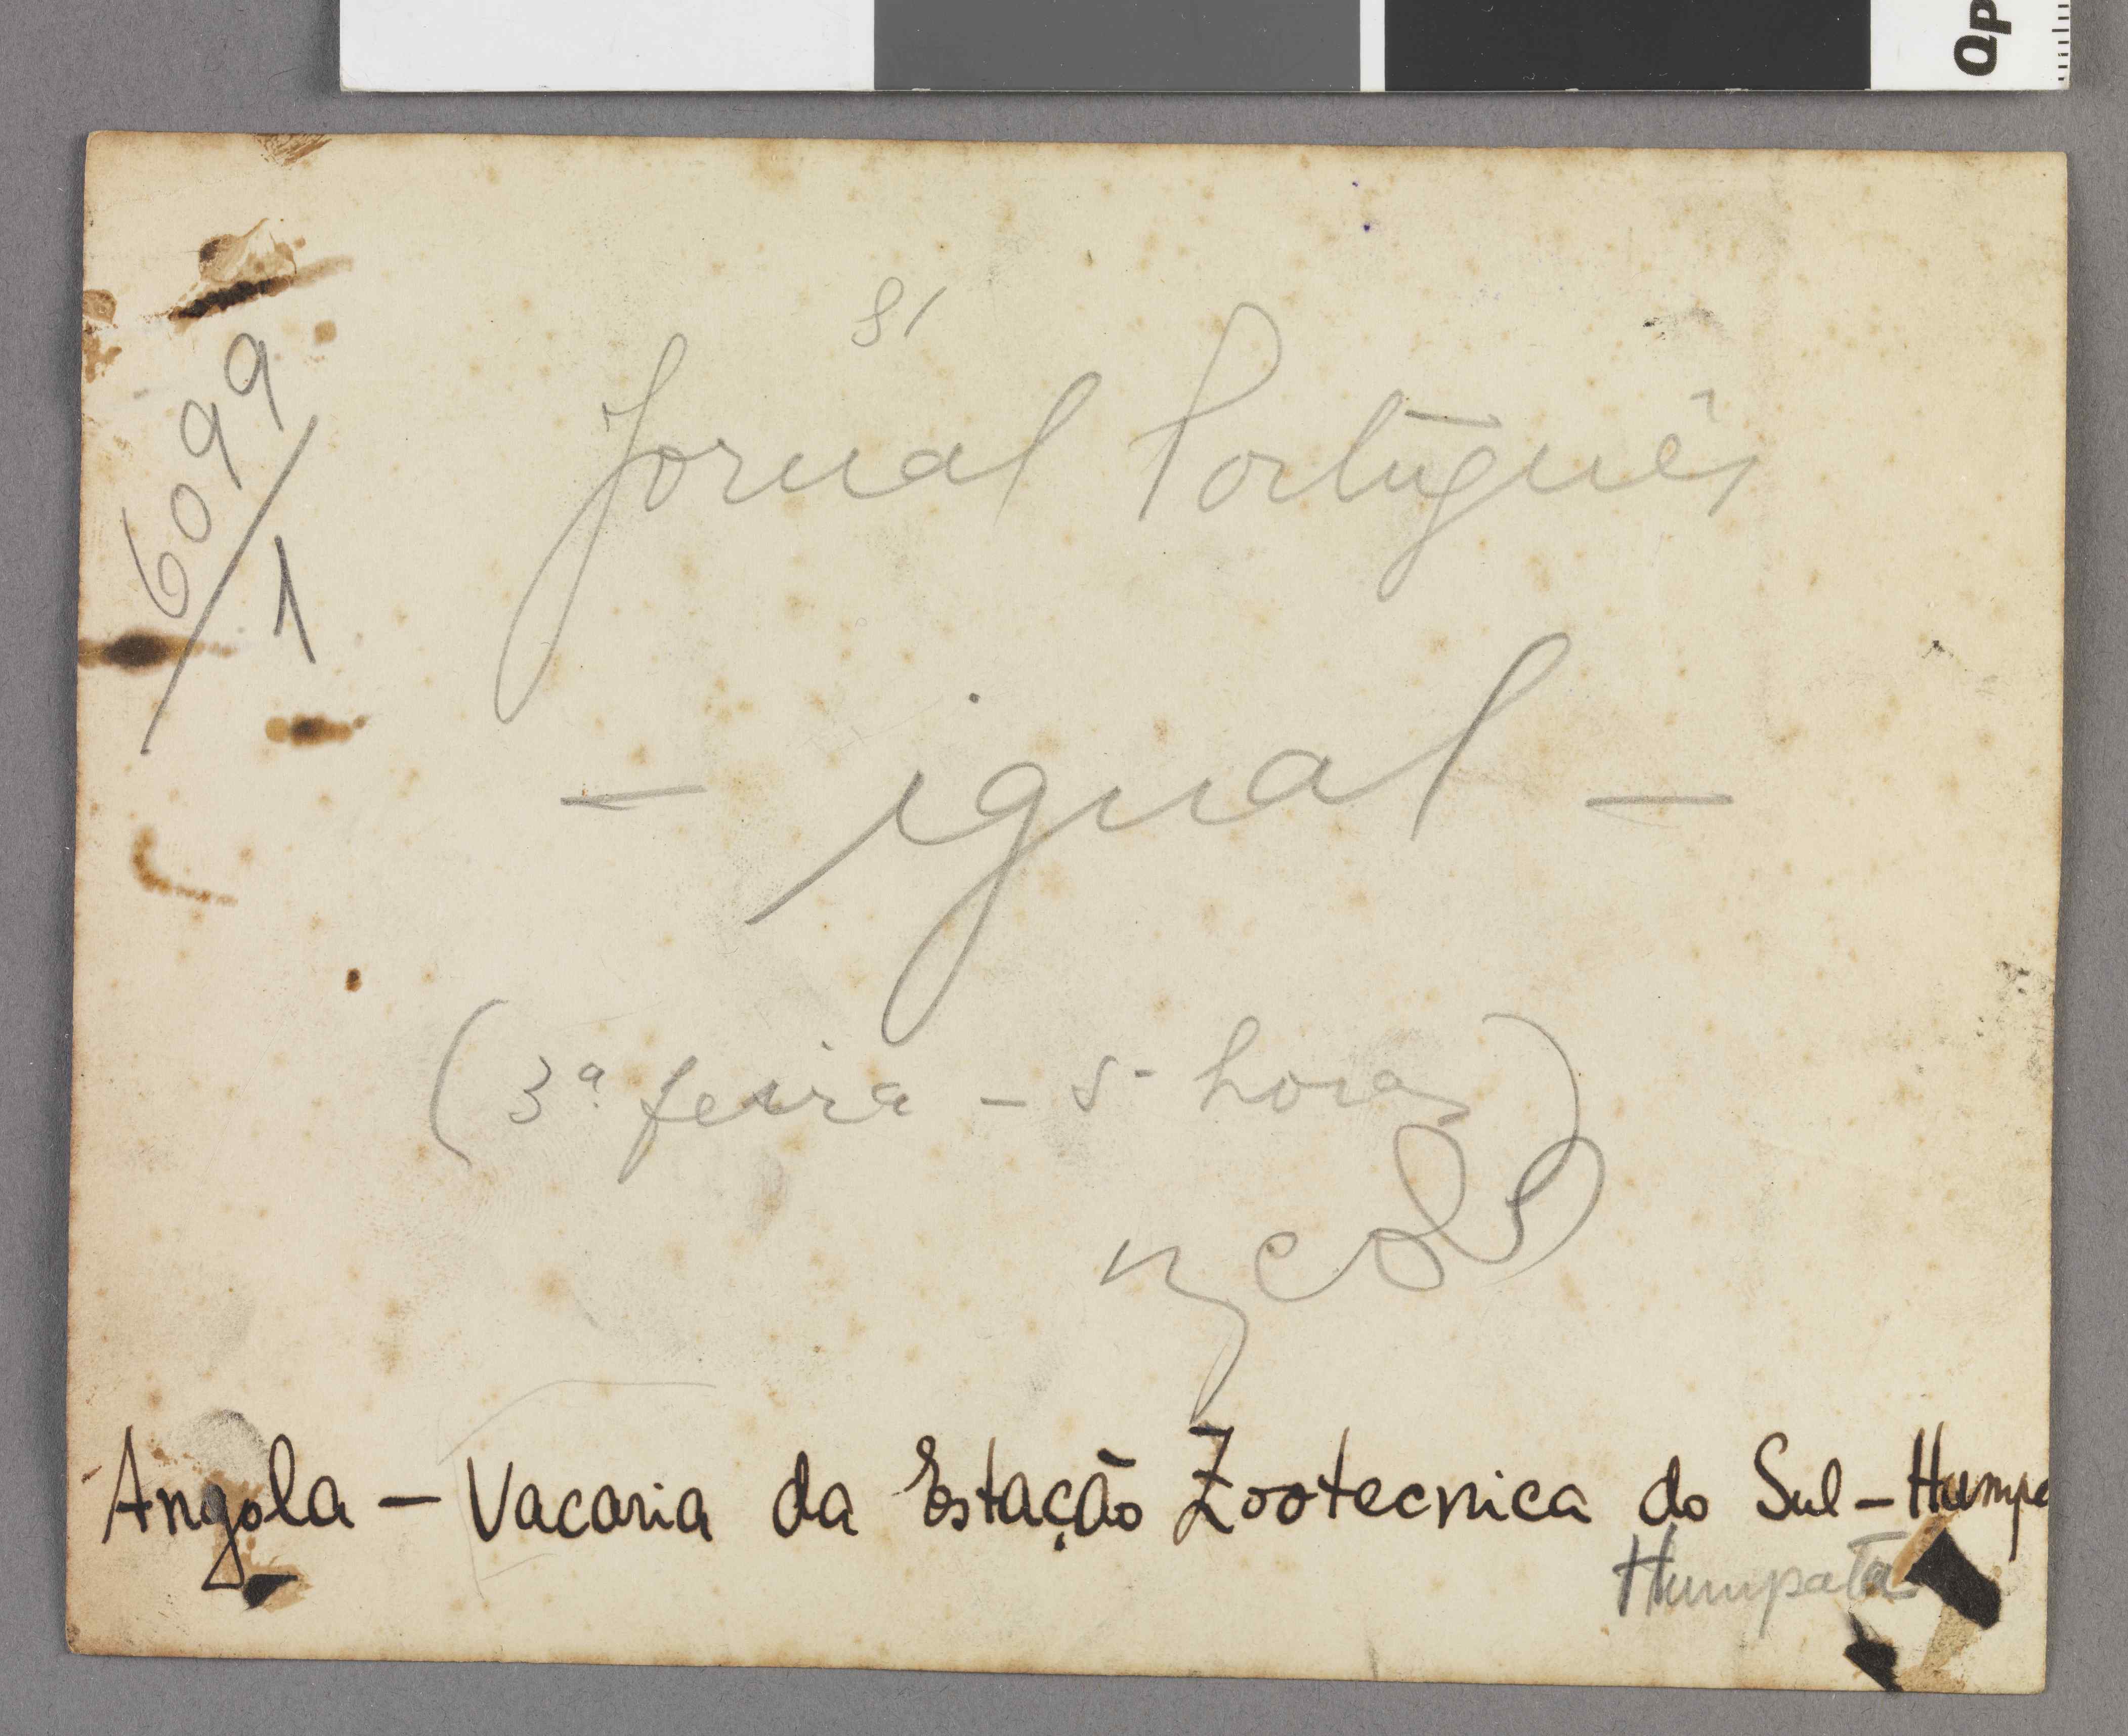 Qp
81
6099/1
Jornal Português
— igual —
(3ª feira — 5 horas)
Angola — Vacaria da Estação Zootecnica do Sul — Humpa
Humpata